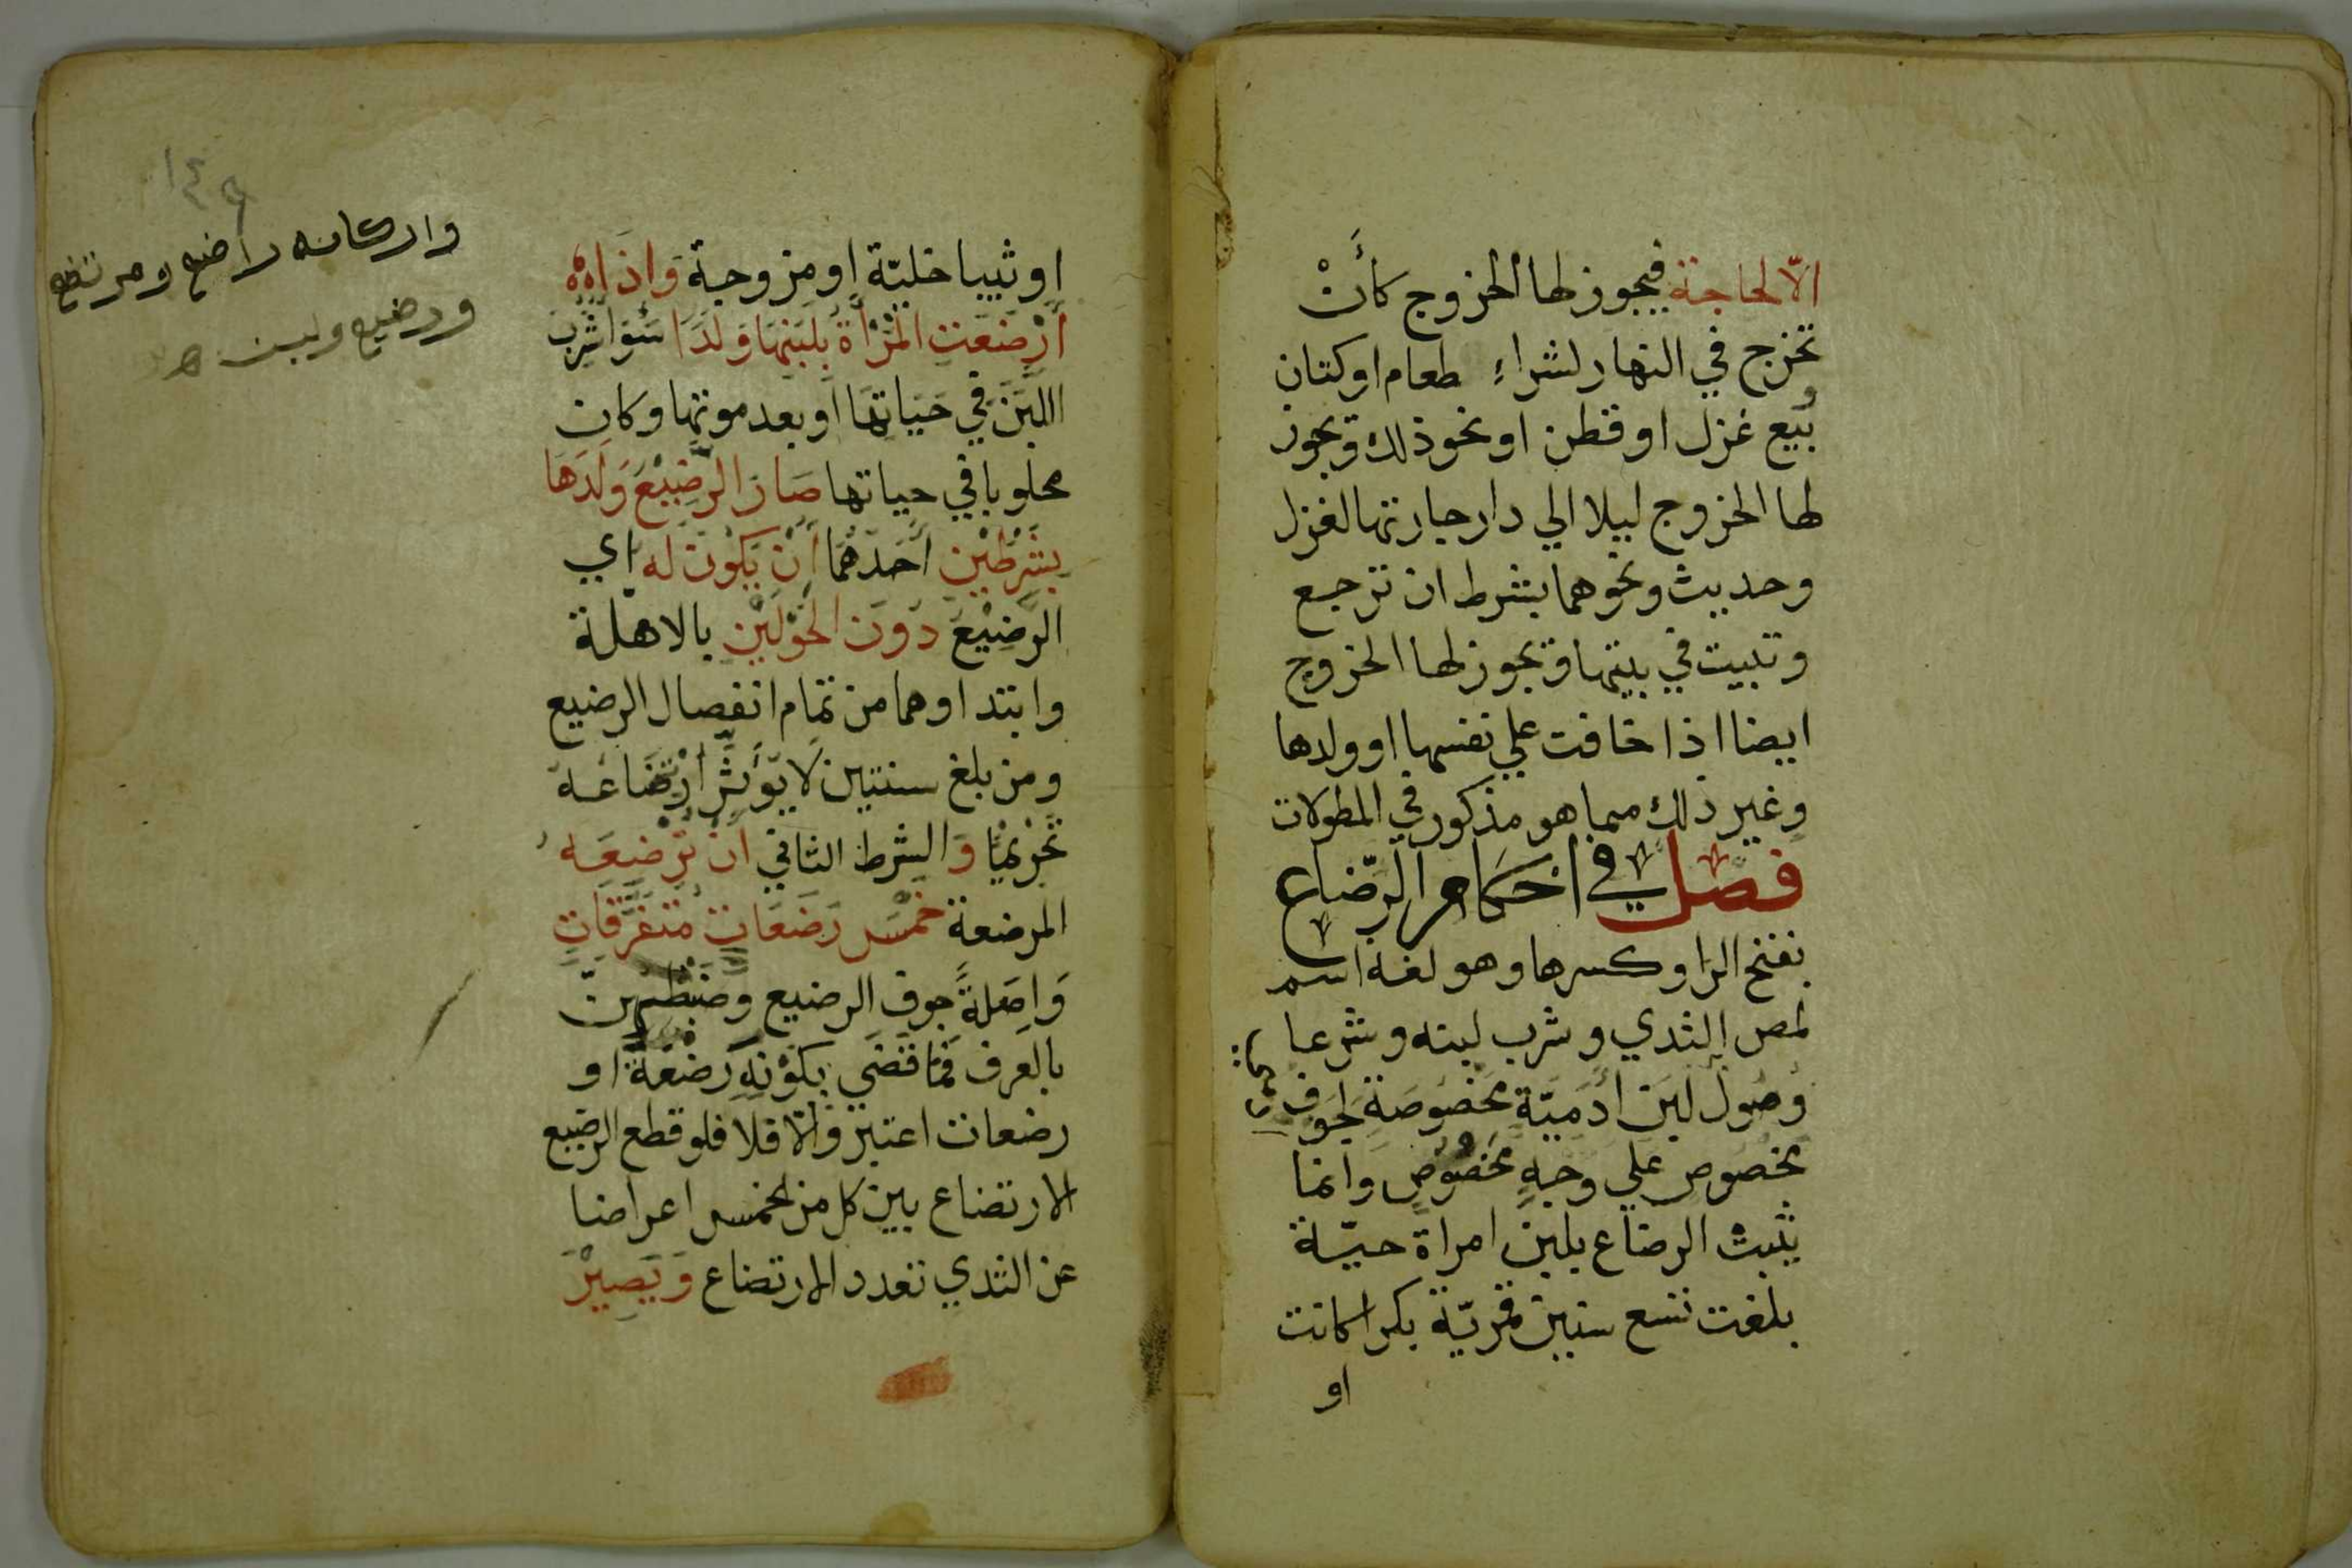 الّا لحاجة فيجوز لها الخروج كأنْ
تخرج في النهار لشراءِ طعام او كتان
وبيع غزل او قطن او نحو ذلك ويجوز
لها الخروج ليلا الي دار جارتها لغزل
وحديث ونحوهما بشرط ان ترجع
وتبيت في بيتها ويجوز لها الخروج
ايضا اذا خافت علي نفسها او ولدها
وغير ذلك مما هو مذكور في المطولات
فصل في احكام الرّضاع
بفتح الرا وكسرها وهو لغة اسم
لمص الثدي وشرب لبنه وشرعا
وُصُولُ لبَنِ ادَميّة مخصُوصَةٍ لجَوفِ
مخصُوصٍ علي وجهٍ مخصُوصٍ وانما
يثبت الرضاع بلبن امراة حيّة
بلغت تسع سنين قمريّة بكرا كانت
او
او ثيبا خليّة او مزوجة وَاذَا
أرْضَعَتِ المَرْأةُ بلَبَنِهَا وَلَدًا سَوَا شَرِبَ
اللبَنَ في حَيَاتِهَا او بعد موتها وكان
محلوبا في حياتها صَارَ الرَّضِيْعُ وَلَدَهَا
بِشَرْطَيْنِ أحَدُهُمَا أنْ يَكُونَ لَه اي
الرَّضِيْعِ دُونَ الحَوْلَيْنِ بالاهلة
وابتداوهما من تمام انفصال الرضيع
ومن بلغ سنتين لَا يُؤَثِّرُ ارْتضَاعه
تَحْرِيْمًا وَالشرط الثاني انْ تُرْضِعَه
المرضعة خَمْسَ رَضَعَاتٍ مُتَفَرِّقَاتٍ
وَاصِلَةً جوف الرضيع وضبطهن
بالعرف فمَا قَضَي بكوْنِهِ رَضْعَةً او
رضعات اعتبر والّا فلا فلو قطع الرضيع
الارتضاع بين كل من الخمس اعراضا
عن الثدي تعدد الارتضاع وَيَصِيْرُ
١٤٥
واركانه راضع ومرتضع
ورضيع ولبن ه